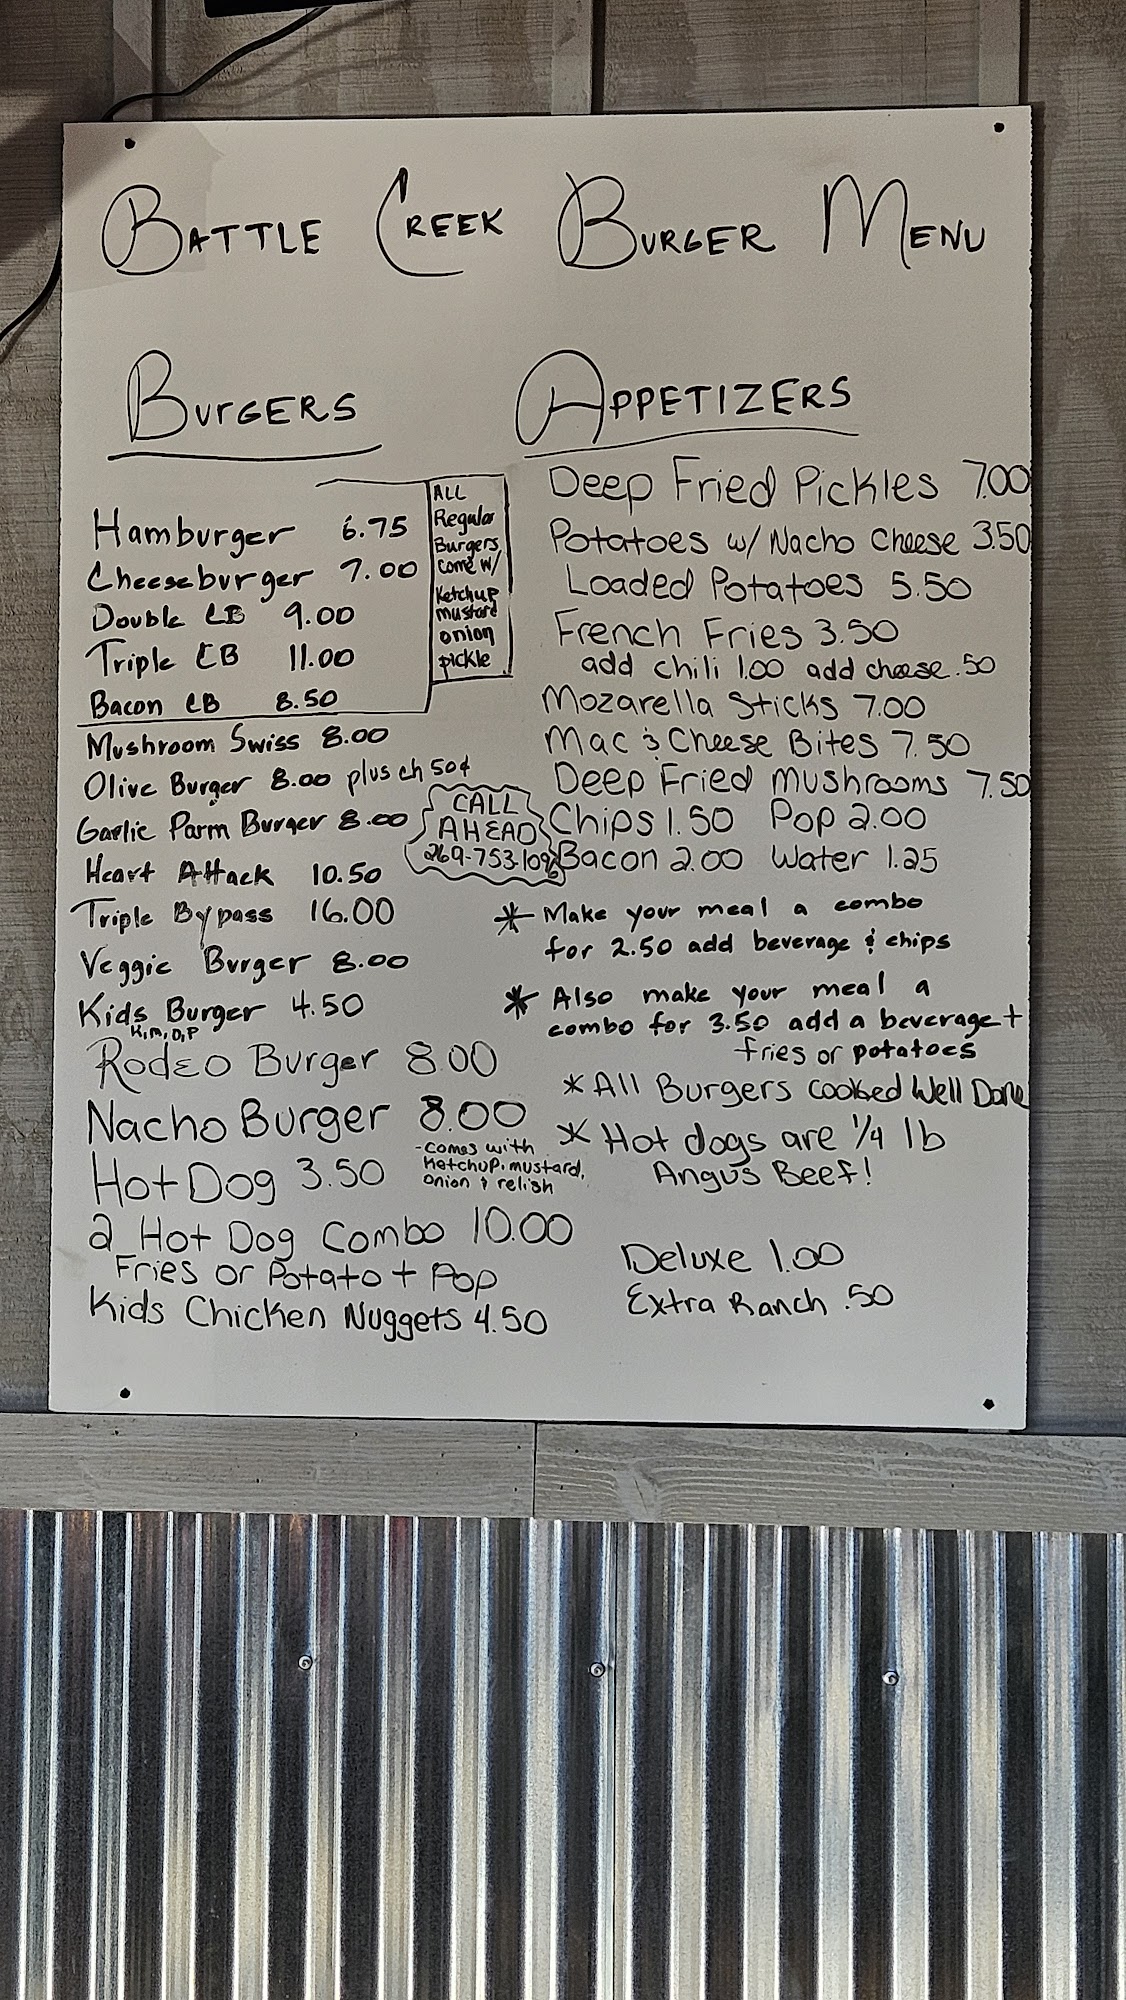 BATTLE CREEK BURGER MENU
BURGERS
Hamburger 6.75
Cheeseburger 7.00
Double CB 9.00
Triple CB 11.00
Bacon CB 8.50
ALL
Regular
Burgers
come w/
Ketchup
mustard
onion
pickle
Mushroom Swiss 8.00
Olive Burger 8.00 plus ch 50¢
Garlic Parm Burger 8.00
Heart Attack 10.50
Triple Bypass 16.00
Veggie Burger 8.00
Kids Burger 4.50
K, M, O, P
Rodeo Burger 8.00
Nacho Burger 8.00
Hot Dog 3.50
-comes with
Ketchup, mustard,
onion & relish
2 Hot Dog Combo 10.00
Fries or Potato + Pop
Kids Chicken Nuggets 4.50
CALL
AHEAD
269-753-1096
APPETIZERS
Deep Fried Pickles 7.00
Potatoes w/ Nacho Cheese 3.50
Loaded Potatoes 5.50
French Fries 3.50
add chili 1.00 add cheese .50
Mozarella Sticks 7.00
Mac & Cheese Bites 7.50
Deep Fried Mushrooms 7.50
Chips 1.50 Pop 2.00
Bacon 2.00 Water 1.25
* Make your meal a combo
for 2.50 add beverage & chips
* Also make your meal a
combo for 3.50 add a beverage +
fries or potatoes
* All Burgers cooked Well Done
* Hot dogs are 1/4 lb
Angus Beef!
Deluxe 1.00
Extra Ranch .50